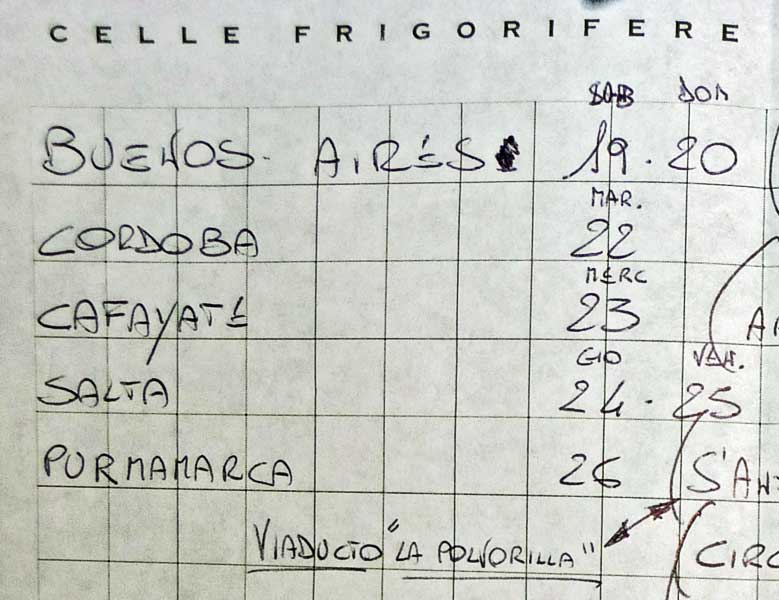 CELLE FRIGORIFERE
SAB DOM
BUENOS AIRES 19. 20
MAR.
CORDOBA 22
MERC
CAFAYATE 23
GIO VEN.
SALTA 24. 25
PURMAMARCA 26 S'AN
VIADUCTO "LA POLVORILLA" CIRC